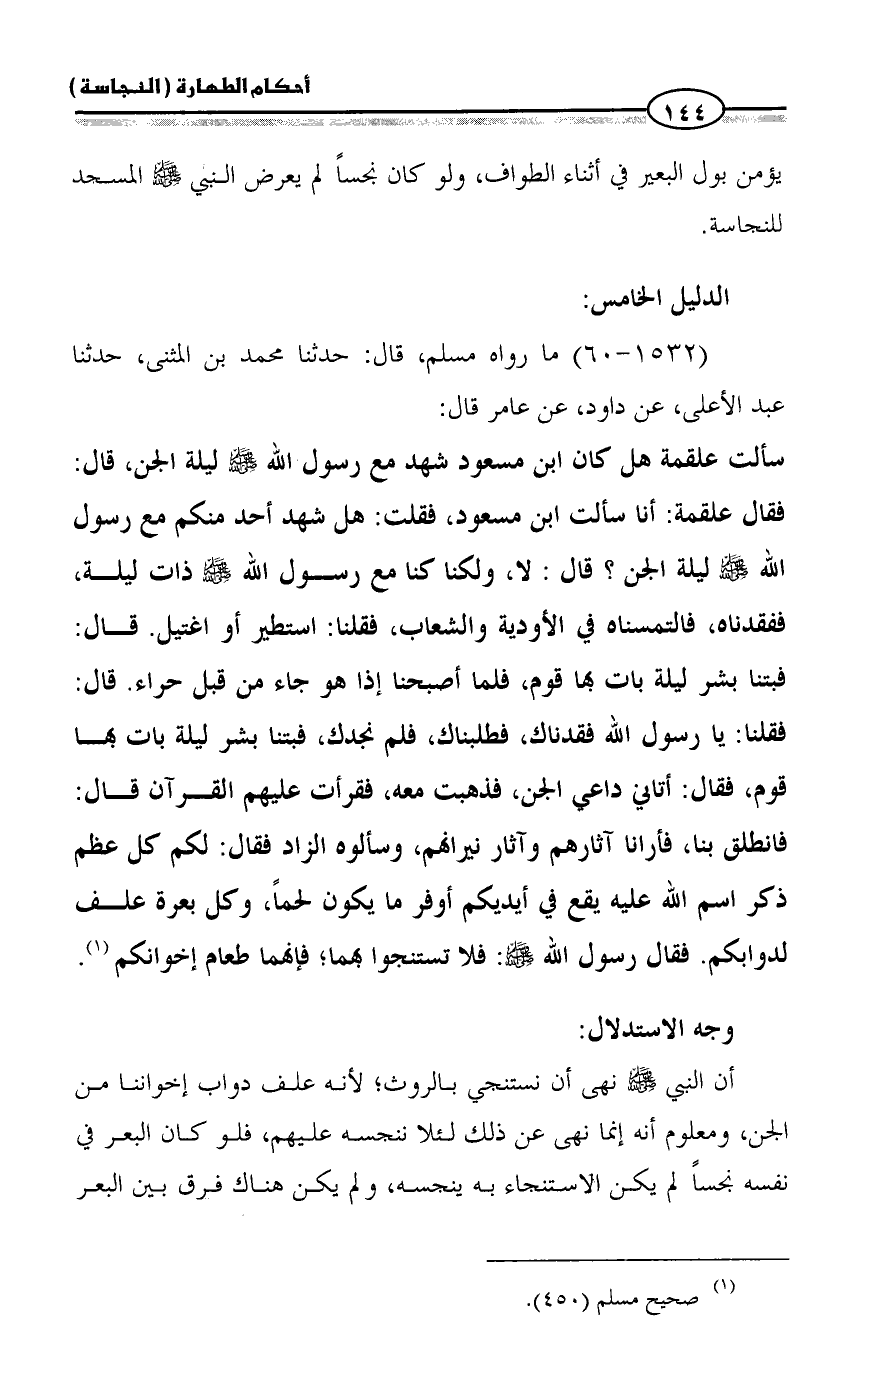 أحكام الطهارة (النجاسة)
١٤٤
يؤمن بول البعير في أثناء الطواف، ولو كان نجساً لم يعرض النبي ﷺ المسجد
للنجاسة.
الدليل الخامس:
(١٥٣٢-٦٠) ما رواه مسلم، قال: حدثنا محمد بن المثنى، حدثنا
عبد الأعلى، عن داود، عن عامر قال:
سألت علقمة هل كان ابن مسعود شهد مع رسول الله ﷺ ليلة الجن، قال:
فقال علقمة: أنا سألت ابن مسعود، فقلت: هل شهد أحد منكم مع رسول
الله ﷺ ليلة الجن ؟ قال : لا، ولكنا كنا مع رسول الله ﷺ ذات ليلة،
ففقدناه، فالتمسناه في الأودية والشعاب، فقلنا: استطير أو اغتيل. قال:
فبتنا بشر ليلة بات بها قوم، فلما أصبحنا إذا هو جاء من قبل حراء. قال:
فقلنا: يا رسول الله فقدناك، فطلبناك، فلم نجدك، فبتنا بشر ليلة بات بها
قوم، فقال: أتاني داعي الجن، فذهبت معه، فقرأت عليهم القرآن قال:
فانطلق بنا، فأرانا آثارهم وآثار نيرانهم، وسألوه الزاد فقال: لكم كل عظم
ذكر اسم الله عليه يقع في أيديكم أوفر ما يكون لحماً، وكل بعرة علف
لدوابكم. فقال رسول الله ﷺ: فلا تستنجوا بهما؛ فإنهما طعام إخوانكم (١).
وجه الاستدلال:
أن النبي ﷺ نهى أن نستنجي بالروث؛ لأنه علف دواب إخواننا من
الجن، ومعلوم أنه إنما نهى عن ذلك لئلا ننجسه عليهم، فلو كان البعر في
نفسه نجساً لم يكن الاستنجاء به ينجسه، ولم يكن هناك فرق بين البعر
(١) صحيح مسلم (٤٥٠).